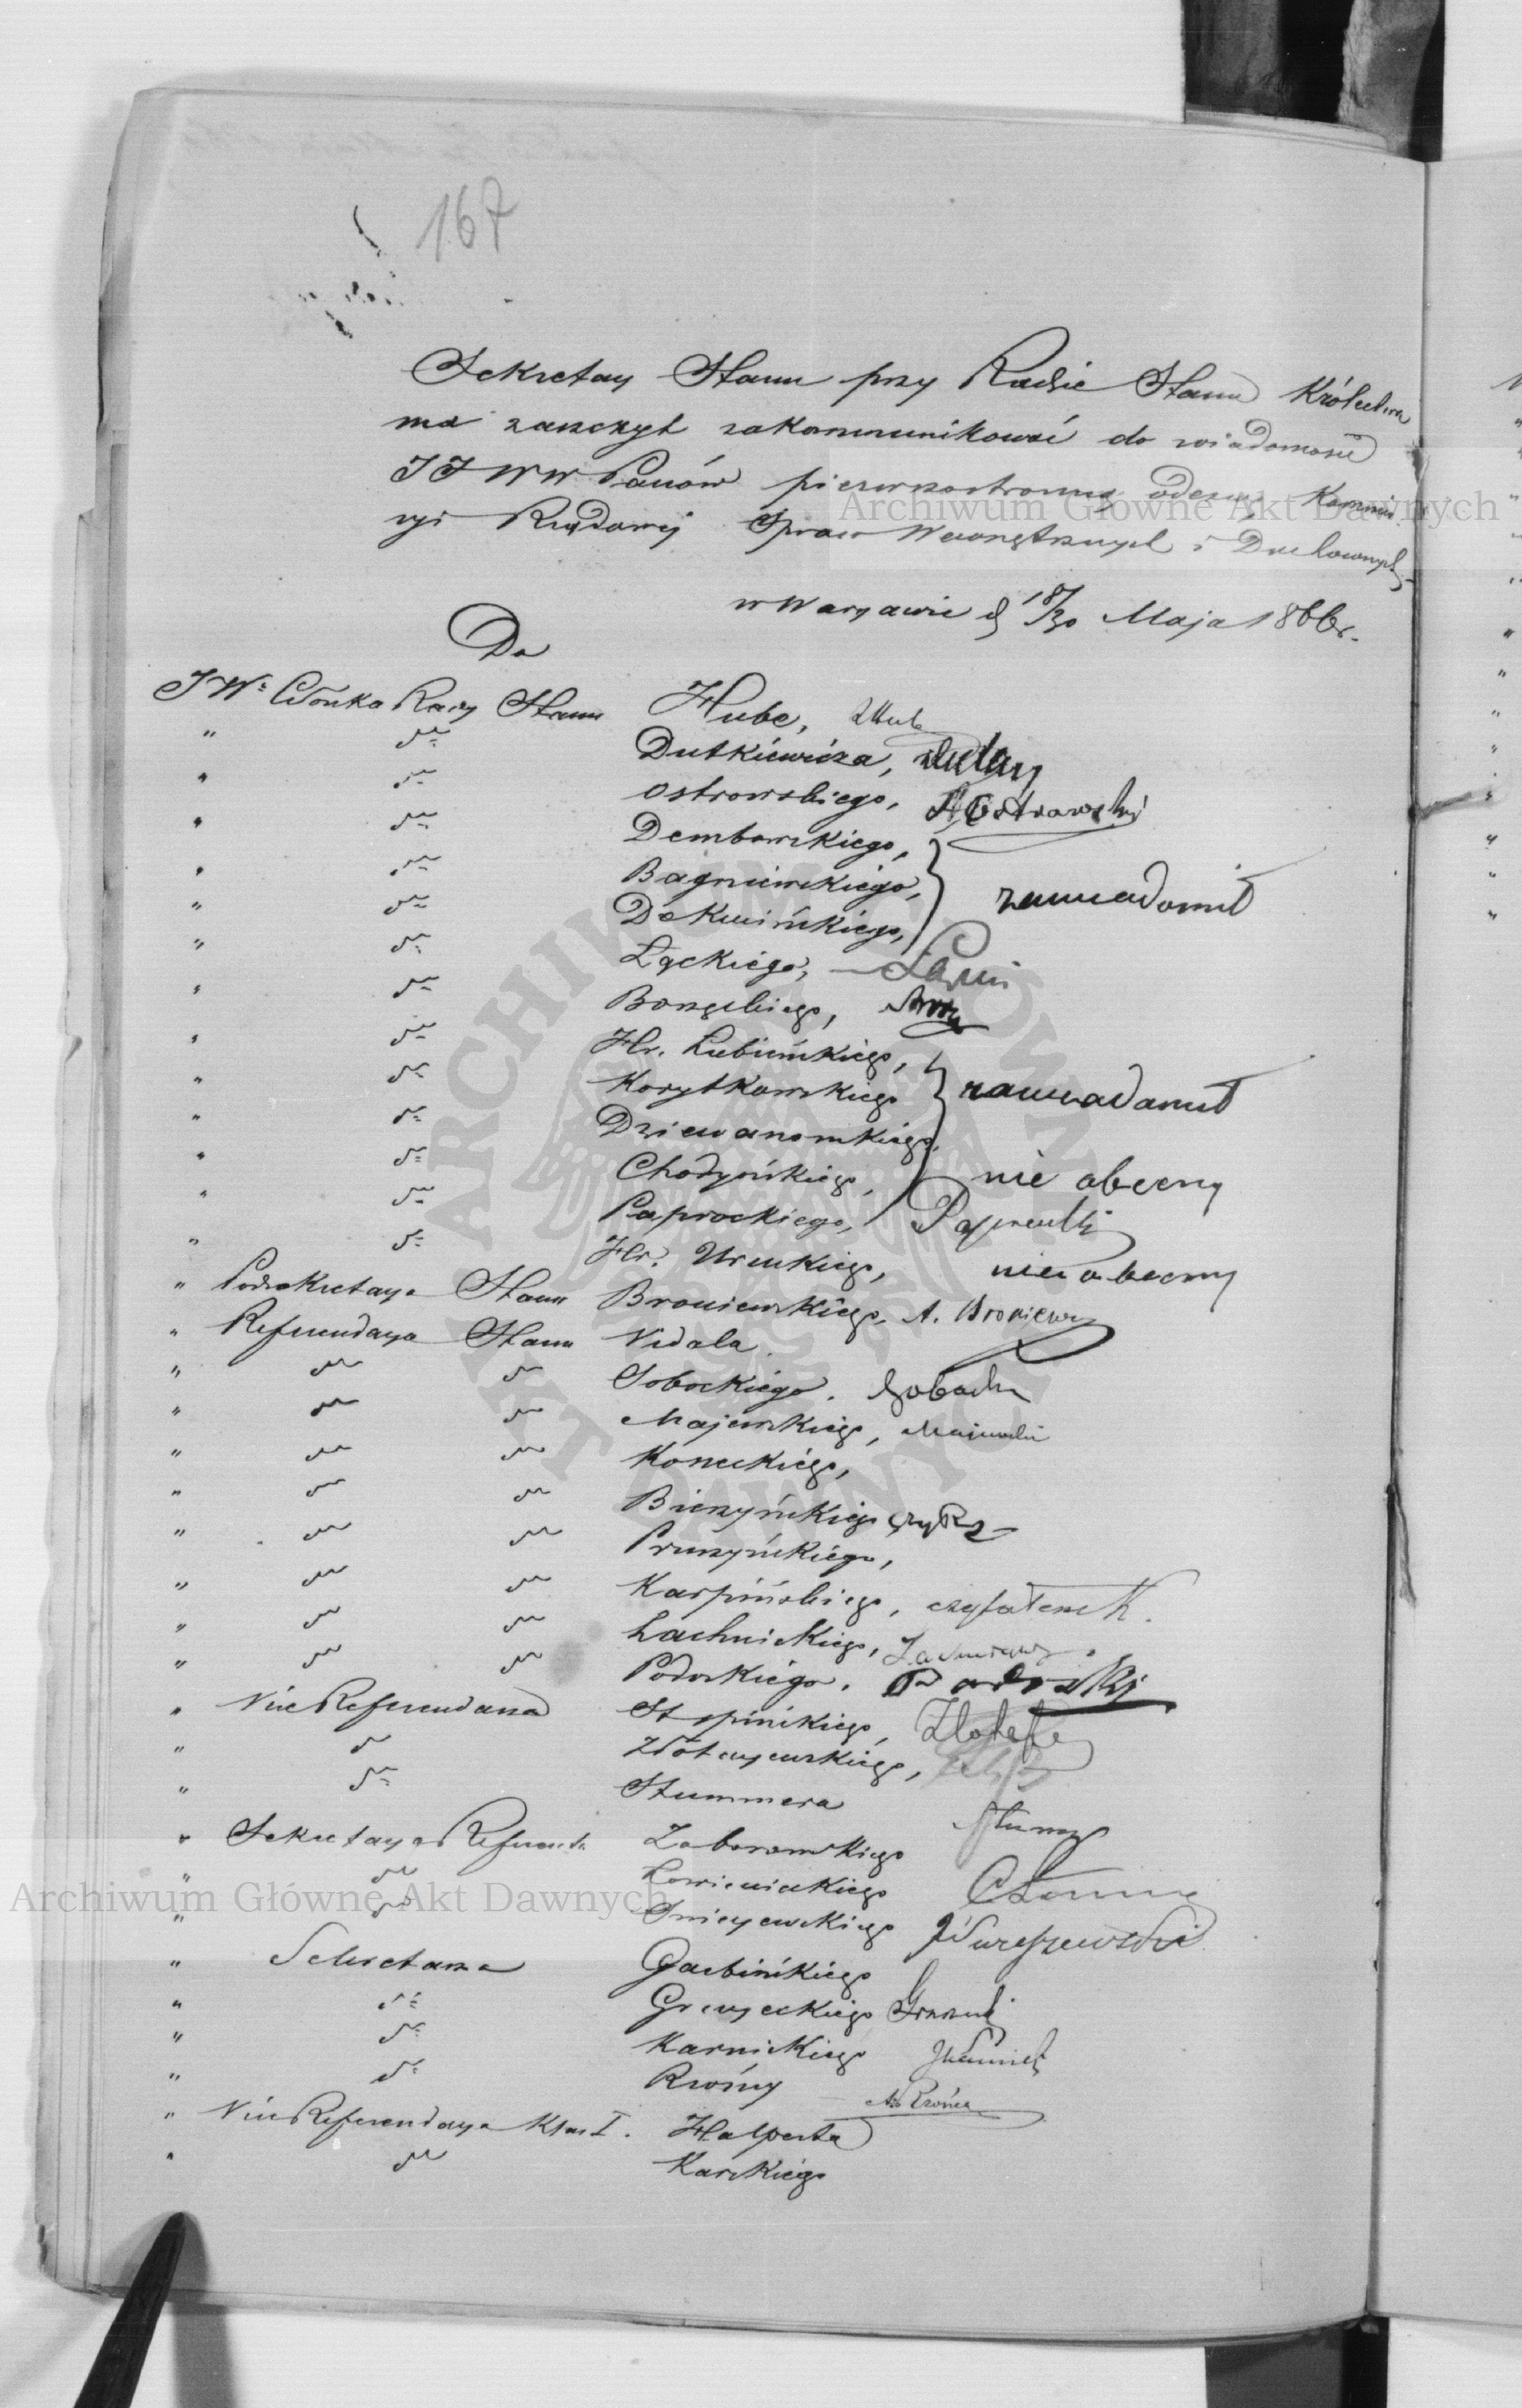 167
Sekretarz Stanu przy Radzie Stanu Królestwa
ma zaszczyt zakommunikować do wiadomości
JJWW Panów pierwszostronną odezwę Kommis
syi Rządowéj Spraw Wewnętrznych i Duchownych
w Warszawie d 18/30 Maja 1866 r.
Do
JW: Członka Rady Stanu Hube,
" " Dutkiewicza,
" " Ostrowskiego, A Ostrowski
" " Dembowskiego,
" " Bagniewskiego, zawiadomił
" " Dekucińskiego,
" " Łąckiego,
" " Borzęckiego,
" " Hr. Łubieńskiego,
" " Korytkowskiego zawiadomił
" " Dziewanowskiego,
" " Chodyńskiego, nie obecny
" " Paprockiego, Paprocki
" " Hr. Uruskiego, nie obecny
" Podsekretarza Stanu Broniewskiego, A. Broniews
" Referendarza Stanu Vidala
" " " Sobockiego, Sobocki
" " " Majewskiego, Majewski
" " " Koneckiego,
" " " Bieczyńskiego
" " " Pruszyńskiego,
" " " Karpińskiego, czytałem K.
" " " Lachnickiego,
" " " Podoskiego, Podoski
" Vice Referendarza Stępińskiego,
" " Złotarzewskiego,
" " Stummera
" Sekretarza Referenta Zaborowskiego
" " Łowienickiego
" " Świeżewskiego
" Sekretarza Garbińskiego
" " Grzczeckiego
" " Karnickiego
" " Rwóny
" Vice Referendarza Klas I. Halperta
" " Karskiego
Archiwum Główne Akt Dawnych
Archiwum Główne Akt Dawnych
ARCHIWUM GŁÓWNE AKT DAWNYCH